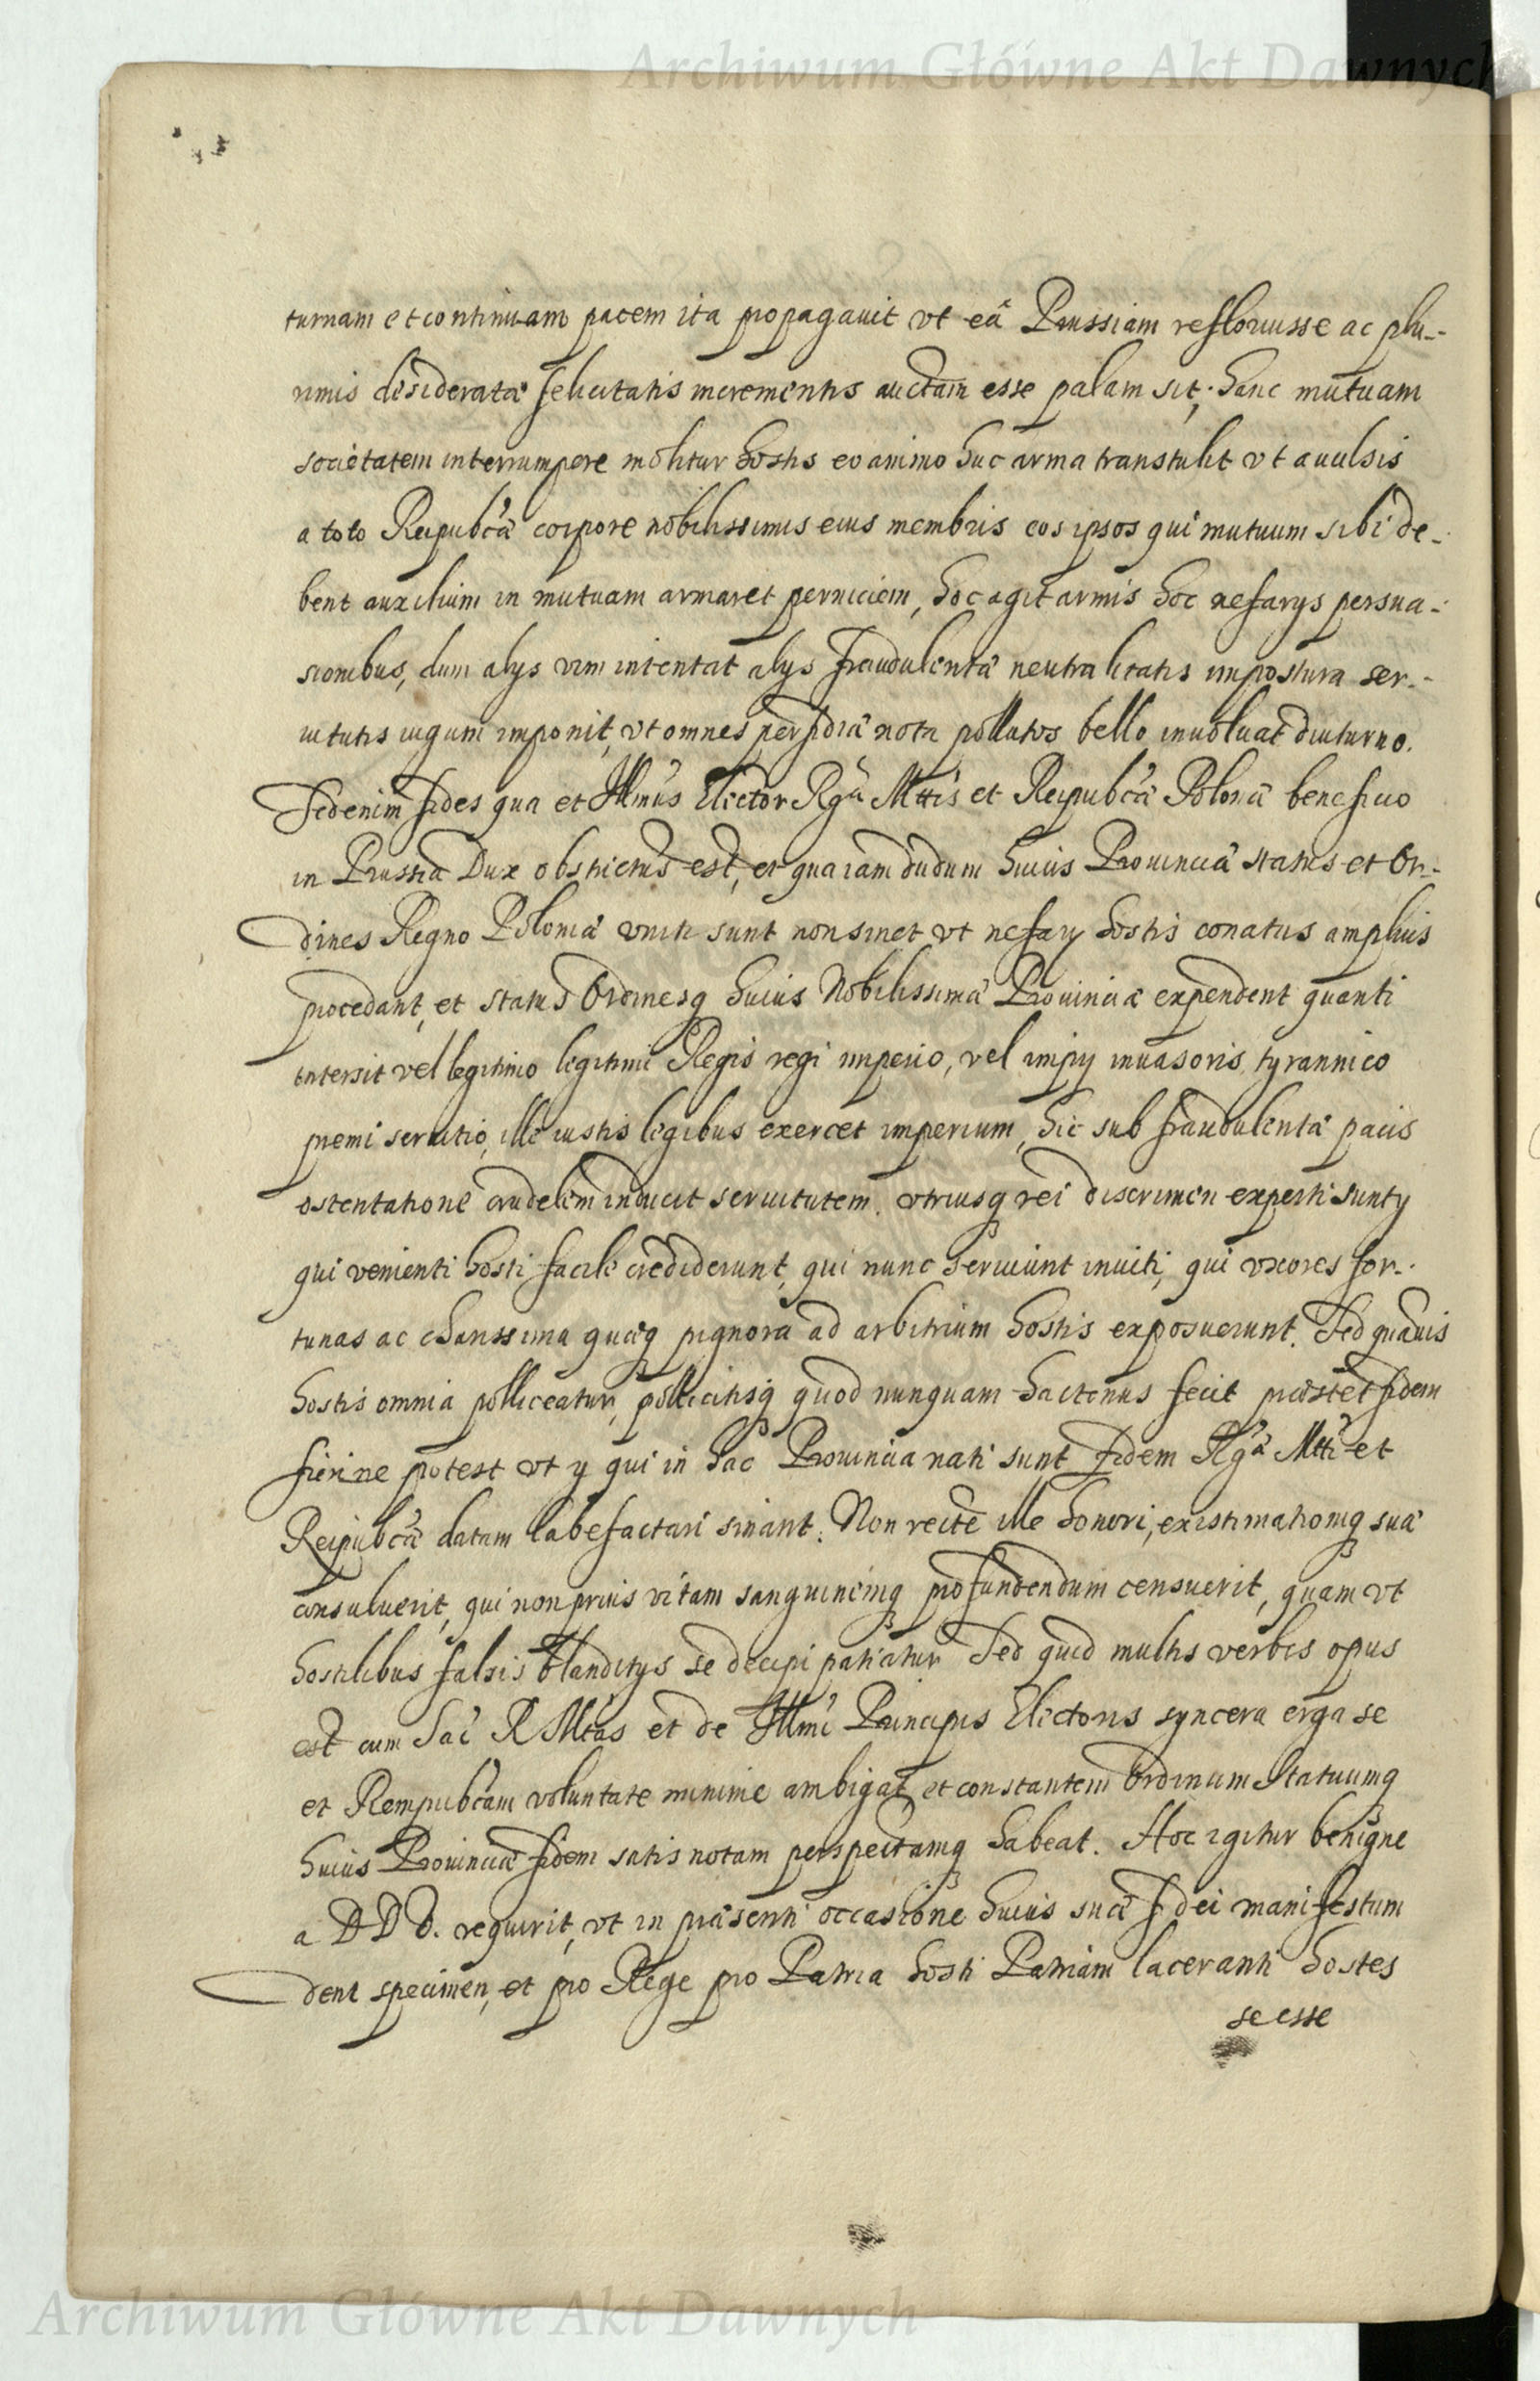 Archiwum Główne Akt Dawnych
turnam et continuam pacem ita propagauit vt eâ Prussiam refloruisse ac plu-
rimis desideratæ felicitatis incrementis auctam esse palam sit. hanc mutuam
societatem interrumpere molitur hostis eo animo huc arma transtulit vt auulsis
a toto Reipubcæ corpore nobilissimis eius membris eos ipsos qui mutuum sibi de-
bent auxilium in mutuam armaret perniciem, hoc agit armis hoc nefarys persua-
sionibus, dum alys vim intentat alys fraudulentâ neutralitatis impostura ser-
uitutis iugum imponit, vt omnes perfidiæ nota pollutos bello inuoluat diuturno.
Sed enim fides qua et Illmus Elector Rgæ Mttis et Reipubcæ Polonæ beneficio
in Prussia Dux obstrictus est, et qua iam dudum huius Prouinciæ status et Or-
dines Regno Poloniæ vniti sunt non sinet vt nefary hostis conatus amplius
procedant, et status Ordinesq huius Nobilissimæ Prouinciæ expendent quanti
intersit vel legitimo legitimi Regis regi imperio, vel impy inuasoris tyrannico
premi seruitio, ille iustis legibus exercet imperium, hic sub fraudulentâ pacis
ostentatione crudelem inducit seruitutem. vtriusq rei discrimen experti sunt y
qui venienti hosti facile crediderunt, qui nunc seruiunt inuiti, qui vxores for-
tunas ac charissima quæq pignora ad arbitrium hostis exposuerunt. Sed quãuis
hostis omnia polliceatur, pollicitisq quod nunquam hactenus fecit præstet fidem
fierine potest vt y qui in hac Prouincia nati sunt fidem Rgæ Mtti et
Reipubcæ datam labefactari sinant. Non recte ille honori, existimationiq suæ
consuluerit, qui non prius vitam sanguinemq profundendum censuerit, quam vt
hostilibus falsis blanditys se decipi patiatur Sed quid multis verbis opus
est cum Sac R Mtas et de Illmi Principis Electoris syncera erga se
et Rempubcam voluntate minime ambigat, et constantem Ordinum Statuumq
huius Prouinciæ fidem satis notam perspectamq habeat. Hoc igitur benigne
a D D D. requirit, vt in præsenti occasione huius suæ fidei manifestum
dent specimen, et pro Rege pro Patria hosti Patriam laceranti hostes
se esse
Archiwum Główne Akt Dawnych